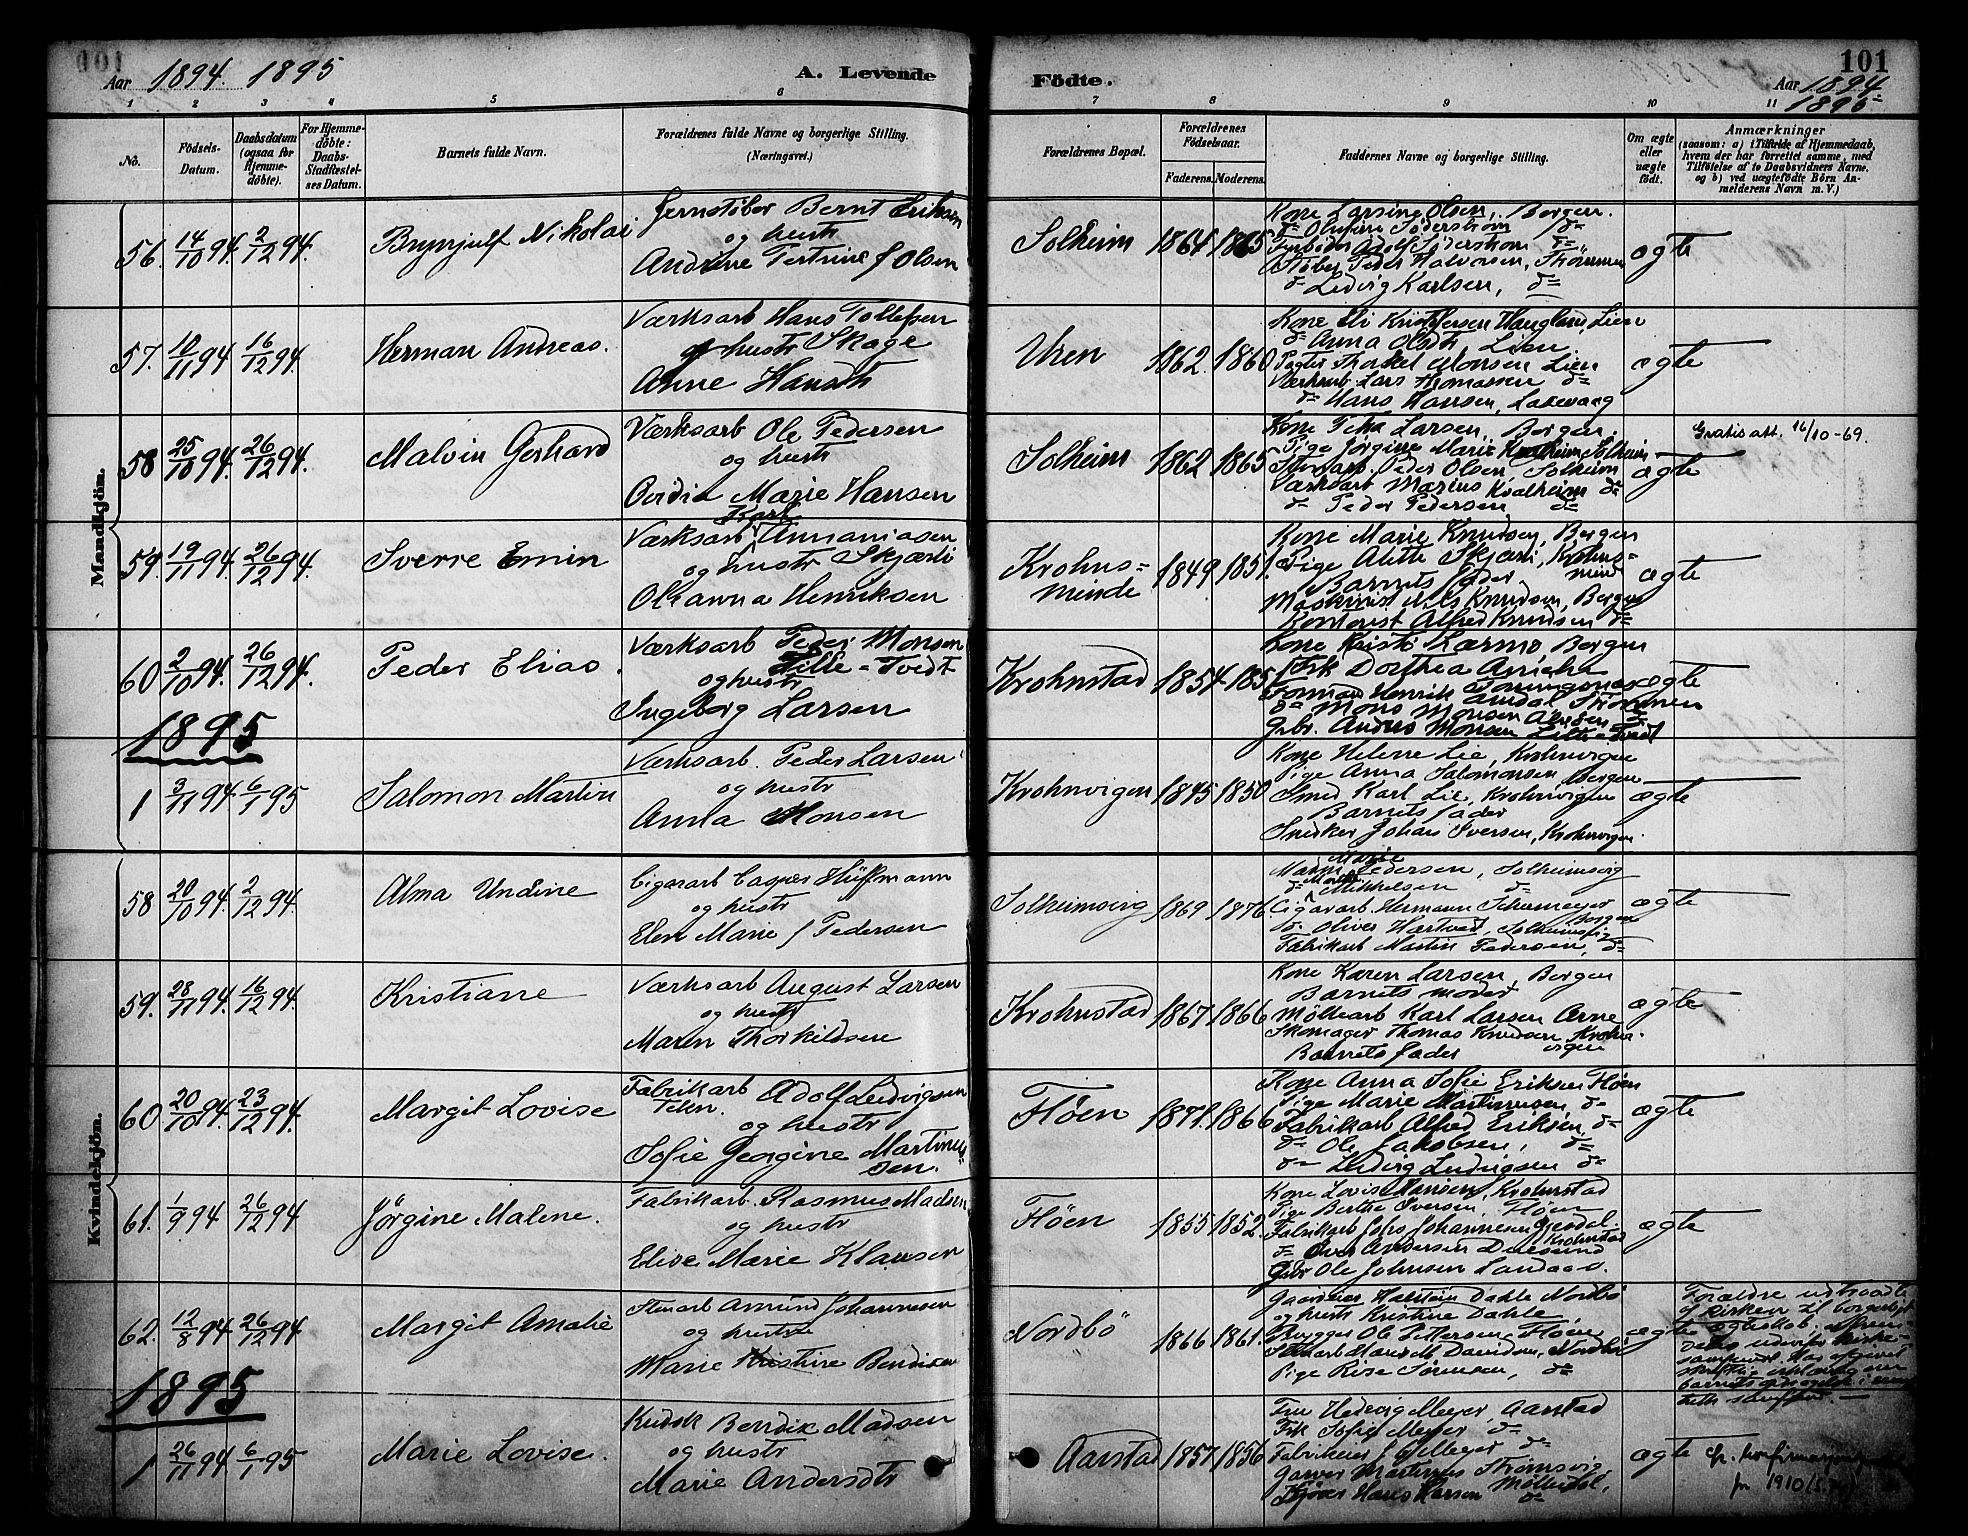 101
Aar 1894. 1895
A. Levende
Födte.
101
Aar 1894
1895
1 2 3 4 5 6 7 8 9 10 11
No.
Födsels-Datum.
Daabsdatum (ogsaa for Hjemme-döbte).
For Hjemme-döbte: Daabs-Stadfæstel-ses Datum.
Barnets fulde Navn.
Forældrenes fulde Navne og borgerlige Stilling. (Næringsvei.)
Forældrenes Bopæl.
Forældrenes Födselsaar.
Faderens. Moderens.
Faddernes Navne og borgerlige Stilling.
Om ægte eller uægte födt.
Anmærkninger
(saasom: a) i Tilfælde af Hjemmedaab,
hvem der har forrettet samme, med
Tilföielse af to Daabsvidners Navne.
og b) ved uægtefödte Börn An-
melderens Navn m. V.)
Mandkjön.
56. 14/10 94. 2/12 94. Brynjulf Nikolai
Jernstöber Bernt Eriksen
og hustr
Andrine Petrine f Olsen
Solheim 1864 1865
Kone Larsine Olsen, Bergen.
d= Olufine Söderstrom d=
Adolf Söderstrom d=
Peder Halvorsen, Strömmen
d= Ledvig Karlsen, d=
ægte
57. 10/11 94. 16/12 94. Herman Andreas.
Værksarb Hans Tollefsen
og hustr Skage
Anne Hansdtr
Uren 1862. 1860
Kone Eli Kristofersen Haugland Lien
d= Anna Olsdtr Lien
Thorkel Monsen Lien
Værksarb Lars Thomassen d=
d= Hans Hansen, Laxevaag
ægte
58 25/10 94. 26/12 94. Malvin Gerhard
Værksarb Ole Pedersen
og hustr
Marie Hansen
Solheim 1862 1865
Kone Larsen, Bergen.
Pige Jørgine Marie Kvalheim Solheim
Peder Olsen, Solheim
Værksarb Marius Kvalheim d=
d= Peder Pedersen d=
ægte
Gratis att. 16/10-69.
59. 19/11 94. 26/12 94. Sverre Emin
Karl
Værksarb Annaniasen
og hustr Skjærli
Olianna Henriksen
Krohns=
minde
1849. 1851.
Kone Marie Knudsen, Bergen
Pige Alette Skjærli, Krohns=
mind
Barnets fader
Maskinist Nils Knudsen, Bergen
Kontorist Alfred Knudsen d=
ægte
60 2/10 94. 26/12 94. Peder Elias.
Værksarb Peder Monsen
Lille-Tvedt
og hustr
Ingeborg Larsen
Krohnstad 1854 1851
Kone Kristi Bergen
Frk Dorthea
Formand Henrik
d= Mons Monsen
Gbr. Anders Monsen Lille-Tvedt
ægte
1895
1 3/11 94. 6/1 95 Salomon Martin
Værksarb. Peder Larsen
og hustr
Anna Monsen
Krohnvigen 1845 1850
Kone Helene Lie, Krohnvigen
Pige Anna Salomonsen, Bergen
Smed Karl Lie, Krohnvigen
Barnets fader
Snedker Johan Iversen, Krohnvigen.
ægte
Kvindekjön.
58 20/10 94. 2/12 94. Alma Undine
Cigararb Casper Hüffmann
og hustr
Elen Marie f Pedersen
Solheimsvig 1869 1876
Marie
Pedersen, Solheimsvig
d= Mikkelsen d=
Cigararb. Hermann
Bergen
d= Oliver Hartved, Solheimsvig
Fabrikarb Martin Pedersen, d=
ægte
59. 28/11 94. 16/12 94. Kristiane
Værksarb August Larsen
og hustr
Maren Thorkildsen
Krohnstad 1867 1866
Kone Karen Larsen, Bergen
Barnets moder
Möllearb Karl Larsen Arne
Skomager Thomas Knudsen Krohn-
vigen
Barnets fader
ægte
60 20/10 94. 23/12 94. Margit Lovise
Fabrikarb Adolf Ludvigsen
og hustr
Sofie Georgine Martinus
sen.
Flöen 1871. 1866
Kone Anna Sofie Eriksen Flöen
Pige Marie Martinusen, d=
Fabrikarb Alfred Eriksen, d=
d= Ole Jakobsen, d=
d= Ludvig Ludvigsen d=
ægte
61. 1/9 94 26/12 94 Jörgine Malene.
Fabrikarb. Rasmus Madsen
og hustr
Elise Marie Klausen
Flöen 1855 1852.
Kone Lovise Hansen, Krohnstad
Pige Berthe Iversen, Flöen
Fabrikarb Johs Johannesen
Krohnstad
d= Andersen
Gbr Ole Johnsen Landaas.
ægte
62. 12/8 94 26/12 94 Margit Amalie
Amund Johannesen
og hustru
Marie Kristine Bendiksen
Nordbö 1866 1861.
Gaardbr Dahle Nordbö
og hustr Kristine Dahle
Brygger Ole Pettersen Flöen
Davidsen, Nordbö
Pige Rise Sörensen, d=
ægte
Forældre udtraadte
af kirken
1895
1 26/11 94. 6/1 95 Marie Lovise.
Kudsk Bendik Madsen
og hustr
Marie Andersdtr
Aarstad 1857 1856
Fru Hedevig Meyer, Aarstad
Frk Sofie Meyer d=
Meyer d=
Garver Martinus Strömsvig
Hans Hansen Möllendal,
d=
ægte
1910